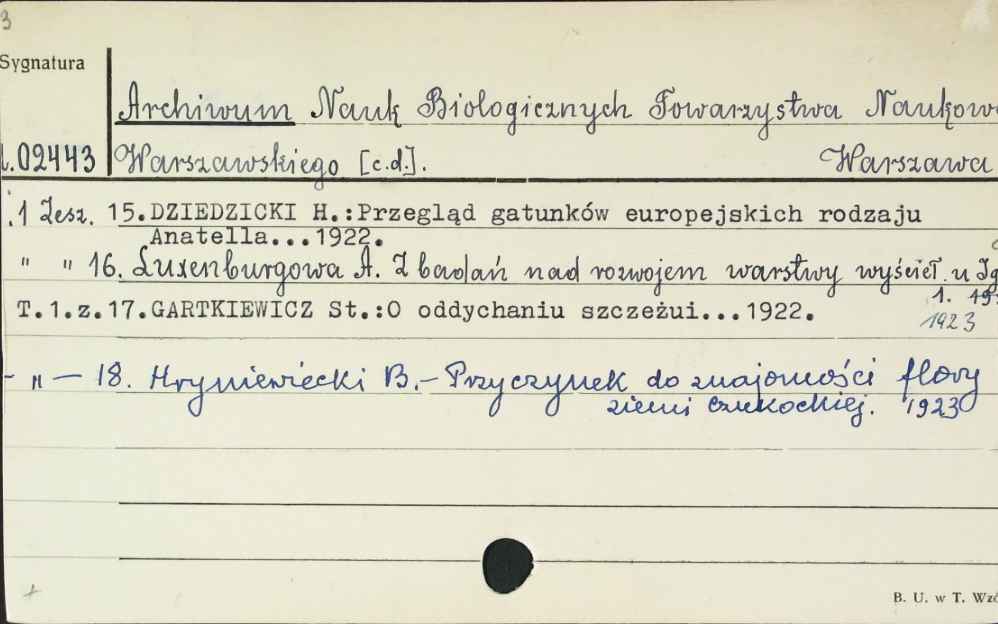 3
Sygnatura
Archiwum Nauk Biologicznych Towarzystwa Naukow
.02443 Warszawskiego [c.d.]. Warszawa
.1 Zesz. 15.DZIEDZICKI H.:Przegląd gatunków europejskich rodzaju
Anatella...1922.
" " 16. Luxenburgowa A. Z badań nad rozwojem warstwy wyścieł. u
T.1.z.17.GARTKIEWICZ St.:O oddychaniu szczeżui...1922.
1923
- " - 18. Hryniewiecki B. - Przyczynek do znajomości flory
ziemi czukockiej. 1923
B. U. w T.